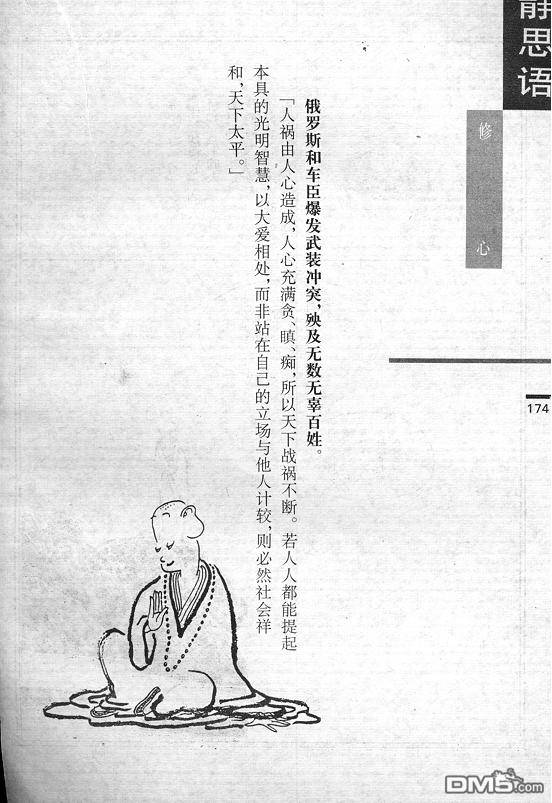 静思语
修心
174
俄罗斯和车臣爆发武装冲突，殃及无数无辜百姓。
「人祸由人心造成，人心充满贪、瞋、痴，所以天下战祸不断。若人人都能提起
本具的光明智慧，以大爱相处，而非站在自己的立场与他人计较，则必然社会祥
和，天下太平。」
DM5.com